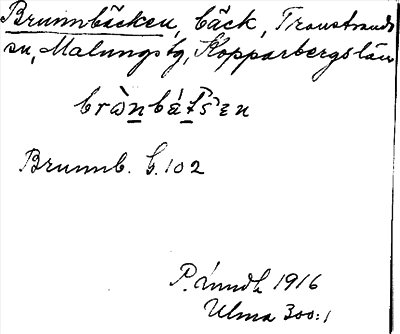 Brunnbäcken, bäck, Transtrands
sn, Malungs tg, Kopparbergs län
brònbát̠s̆en
Brunnb. G. 102
P. Lindh 1916
Ulma 300:1